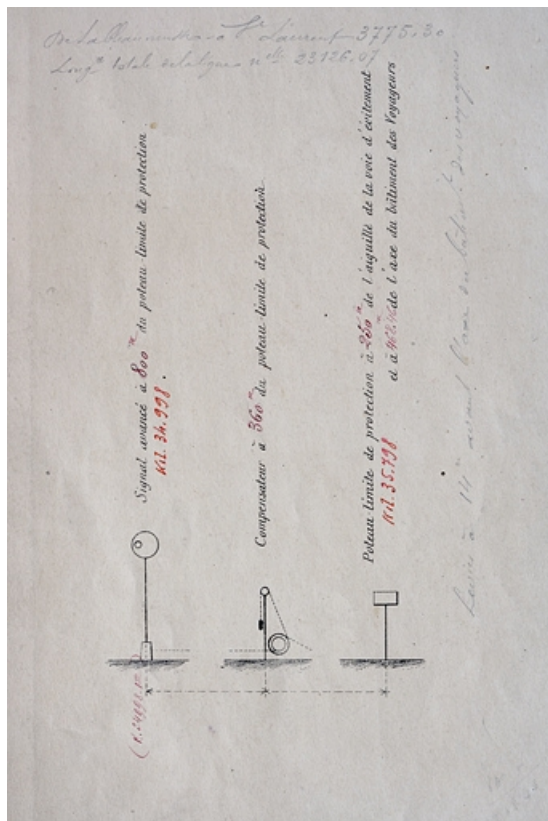 St Laurent 3775.30
Longr totale 23126.07
Signal avancé à 800m du poteau-limite de protection
Kil. 34.998
Compensateur à 360m du poteau-limite de protection
Poteau-limite de protection à 250m de l'aiguille de la voie d'évitement
et à de l'axe du bâtiment des Voyageurs
Kil. 35.798
Levier à 14m